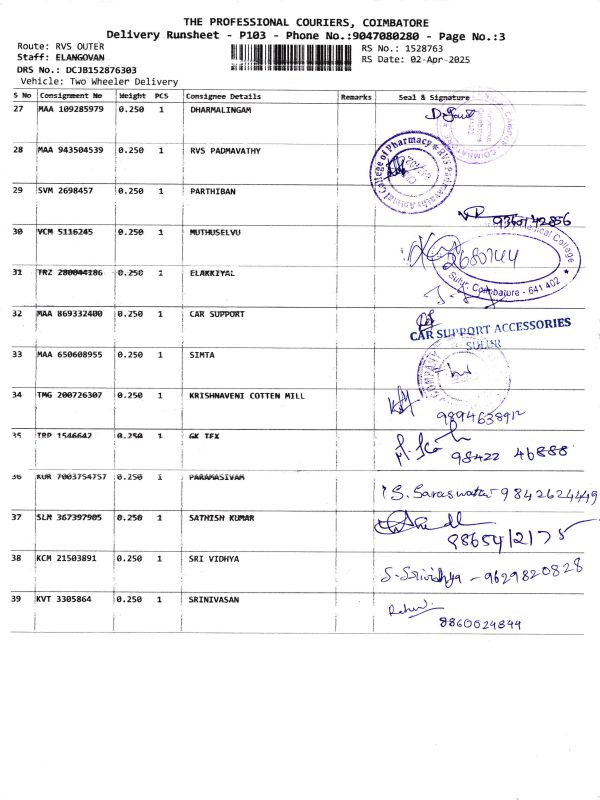 THE PROFESSIONAL COURIERS, COIMBATORE
Delivery Runsheet - P103 - Phone No.:9047080280 - Page No.:3
Route: RVS OUTER
RS No.: 1528763
Staff: ELANGOVAN
RS Date: 02-Apr-2025
DRS No.: DCJB152876303
Vehicle: Two Wheeler Delivery
S No Consignment No Weight PCS Consignee Details Remarks Seal & Signature
27 MAA 109285979 0.250 1 DHARMALINGAM
28 MAA 943504539 0.250 1 RVS PADMAVATHY
RVS Padmavathi Ammal College of Pharmacy
29 SVM 2698457 0.250 1 PARTHIBAN
9360142856
30 VCM 5116245 0.250 1 MUTHUSELVU
2680744
Medical College
Sulur, Coimbatore - 641 402
31 TRZ 280044186 0.250 1 ELAKKIYAL
32 MAA 869332400 0.250 1 CAR SUPPORT
CAR SUPPORT ACCESSORIES
SULUR
33 MAA 650608955 0.250 1 SIMTA
COMPANY
34 TMG 200726307 0.250 1 KRISHNAVENI COTTEN MILL
9894638912
35 TRP 1546642 0.250 1 GK TEX
98422 46888
36 KUR 7003754757 0.250 1 PARAMASIVAM
S. Saraswathi 9842624449
37 SLM 367397905 0.250 1 SATHISH KUMAR
9865412175
38 KCM 21503891 0.250 1 SRI VIDHYA
S. Srividhya - 9629820828
39 KVT 3305864 0.250 1 SRINIVASAN
8860024844